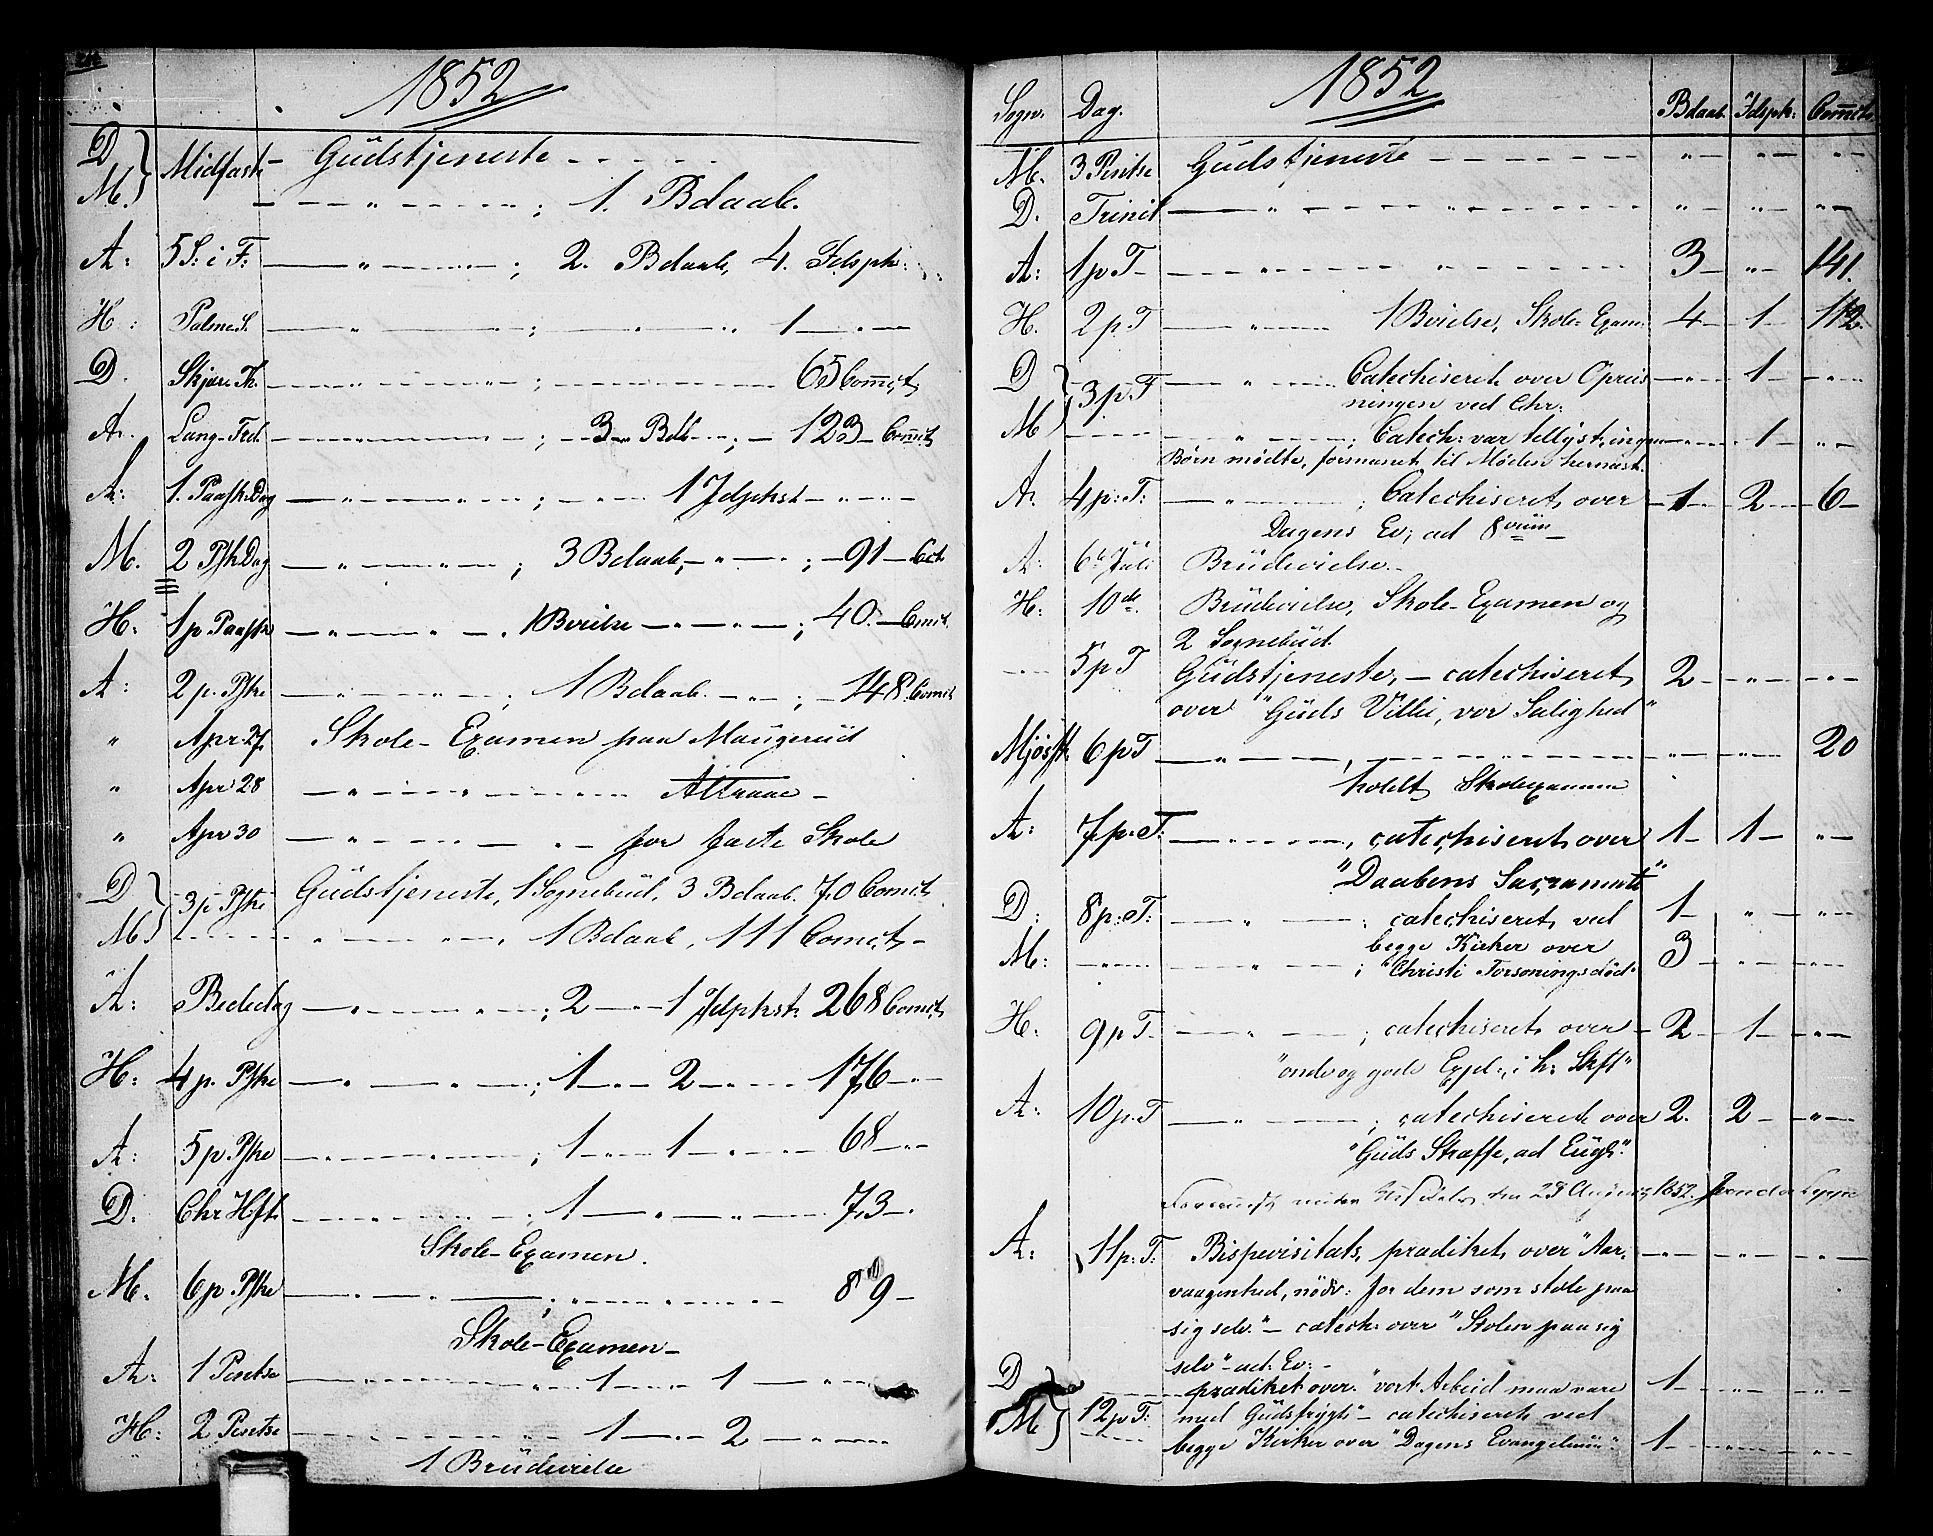 1852
D } Midfaste Gudstjeneste - - - - -
M. } - - " - - - - ; 1. Bdaab.
A: 5 S: i F: - " - ; 2. Bdaab, 4. Idspk:
H: Palme S. - " - ; - " - " 1 - " -
D. Skjære Th. - " - ; - 65 Comct
A. Lang-Fred. - " - ; - 3 - Bdb - ; - 123 - Comct
A: 1. Paask:Dag - " - ; - " - 1 Idspkst - " -
M. 2 Psk Dag - " - ; 3 Bdaab, - " - ; - 91 - Cct
H: 1 p Paaske - " - . 1 Bvielse - " - ; 40. - Comct.
A: 2 p. Pske - " - ; 1 Bdaab. - " - ; - 148. Comct
" Apr. 27. Skole-Examen paa Maugerud
" Apr 28 - " - Altraae -
" Apr 30 - " - for faste Skole
D } 3 p Pske Gudstjeneste, 1 Sognebud, 3 Bdaab. 70 Comct.
M } - " - , 1 Bdaab, 111 Comct -
A: Bededag - " - ; 2 - " - 1 Idspkst: 268 Comct
H: 4 p. Pske - " - ; 1 - " - 2 - " - 176 - " -
A: 5 p Pske - " - ; 1 - " - 1 - " - 68 - " -
D. Chr Hft. - " - 1 - " - 73 - " -
Skole-Examen.
M. 6 p. Pske - " - ; " - 89 -
Skole-Examen -
A: 1 Pintse - " - 1 - " - 1 - " -
H: 2 Pintse - " - 1 - " - 2 - " -
1 Brudevielse
1852
Sogn. Dag. Bdaab. Idspk: Comct.
M. 3 Pintse Gudstjeneste - - - " - " - " -
D. Trinit - " - " - " - " -
A: 1 p T - " - " - 3 - " - 141.
H. 2 p T - " - 1 Bvielse, Skole-Exam: 4 - 1 - 112.
D } 3 p. T - " - Catechiseret over Opreis - " - 1 - " -
ningen ved Chr:
M } - " - ; Catech: var tillyst, ingen - " - 1 - " -
Børn mødte, formanet til Møden herneft.
A: 4 p: T: - " - ; Catechiseret over - 1 - 2 - 6 -
Dagens Ev; ad 8vum -
A: 6te Juli Brudevielse. -
H: 10de. Brudevielse, Skole-Examen og
2 Sognebud.
- 5 p T Gudstjeneste, - catechiseret 2 - " - " -
over "Guds Villie, vor Salighed"
Mjøsstr. 6 p T - " - , - " - " - 20
holdt Skolexamen
A: 7 p: T: - " - , catechiseret over 1 - 1 - " -
"Daabens Sacramente"
D: 8 p: T: - " - ; catechiseret ved 1 - " - " -
begge Kirker over
M: - " - ; "Christi Forsoningsdød" 3 - " - " -
H: 9 p T - " - ; catechiseret over - 2 - 1 - " -
"onde og gode Expl: i h: Skft"
A: 10 p. T - " - ; catechiseret over 2. 2 - " -
"Guds Straffe, ad Eugl:"
den 28 August 1852.
A: 11 p: T: Bispevisitats, prædiket over "Aar- - " - " - " -
vaagenhed, nødv: for dem som stole paa
sig selv." - catech: over "Stolen paa sig
selv" ad: Ev: -
D } - prædiket over. "vort Arbeid maa være 1 - " - " -
M } 12 p T: med Gudsfrygt" - catechiseret ved
begge Kirker over "Dagens Evangelium" 1 - " - " -